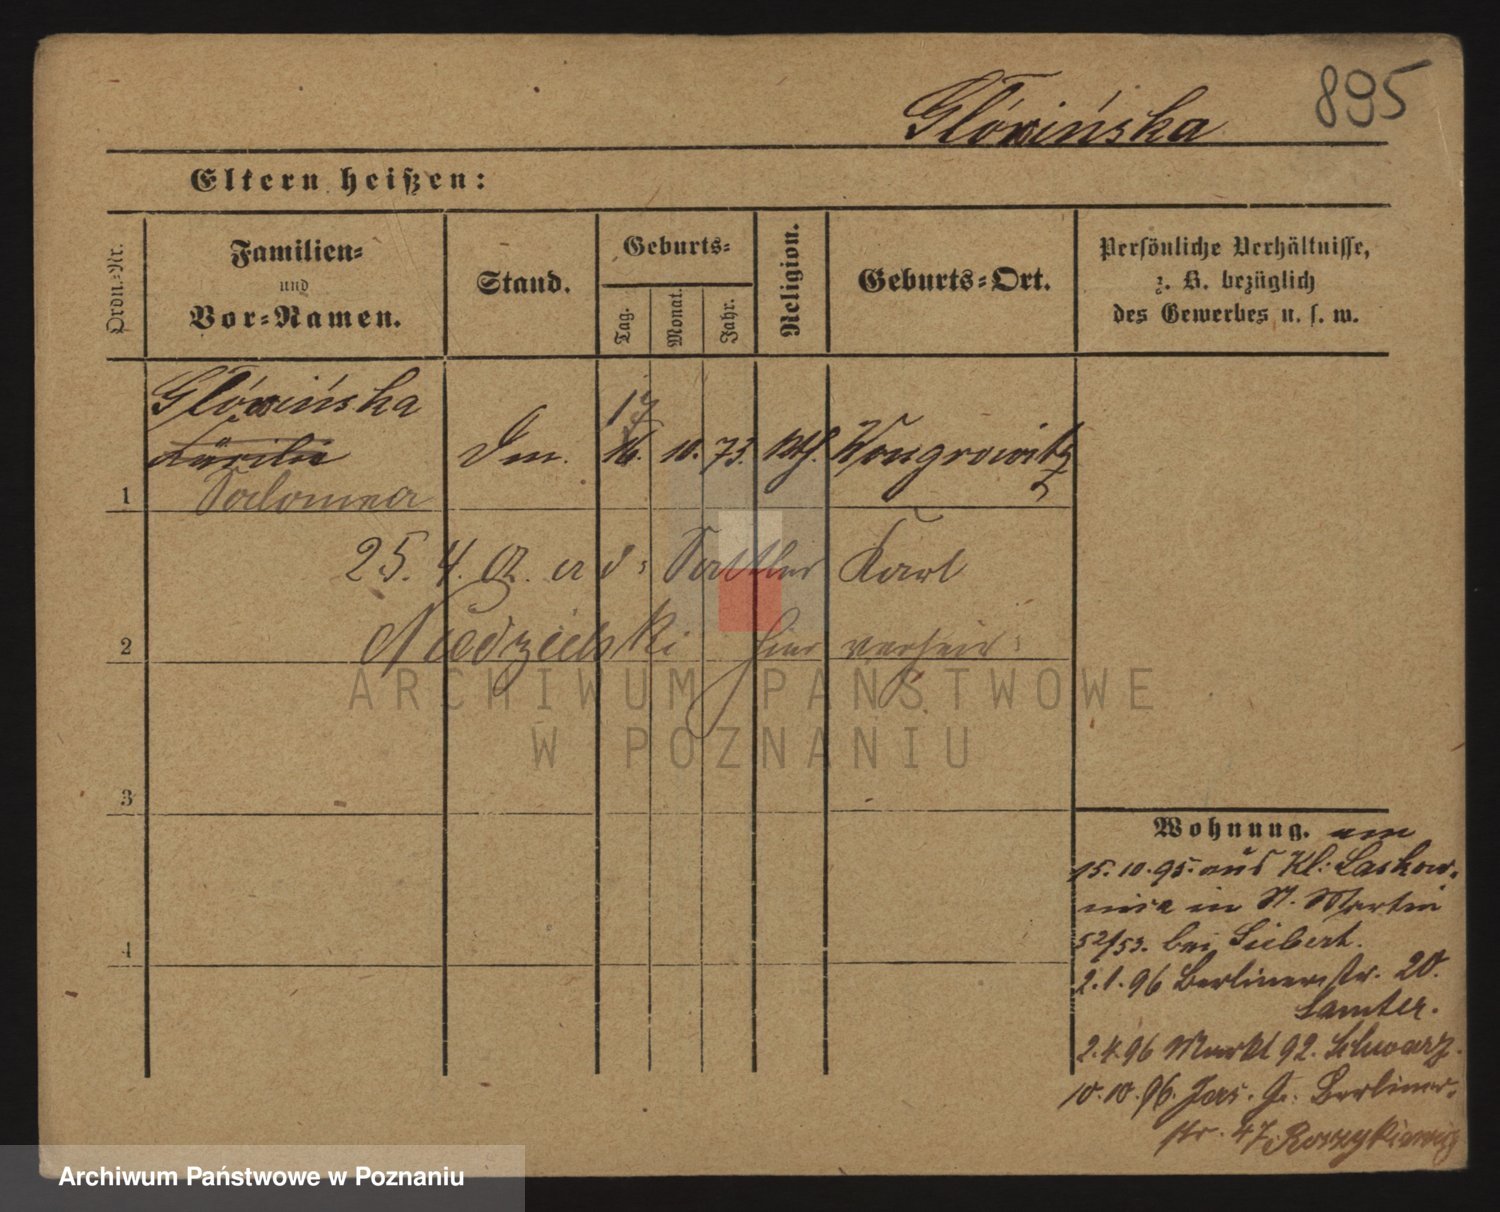 895
Glówińska
Eltern heißen:
Ordn.-Nr.
Familien-
und
Vor-Namen.
Stand.
Geburts-
Tag.
Monat.
Jahr.
Religion.
Geburts-Ort.
Persönliche Verhältnisse,
z. B. bezüglich
des Gewerbes u. s. w.
Glówińska
17
16. 10. 73. kth. Wongrowitz
1 Salomea
25. 4. Sattler Karl
2 Niedzielski hier
ARCHIWUM PAŃSTWOWE
W POZNANIU
3
4
Wohnung.
15.10.95. aus Kl: Laskow-
nica in St. Martin
52/53. bei Siebert.
2.1.96 Berlinerstr. 20.
Lamter.
2.4.96 Markt 92. Schwarz.
10.10.96. Berliner-
str. 47
Archiwum Państwowe w Poznaniu